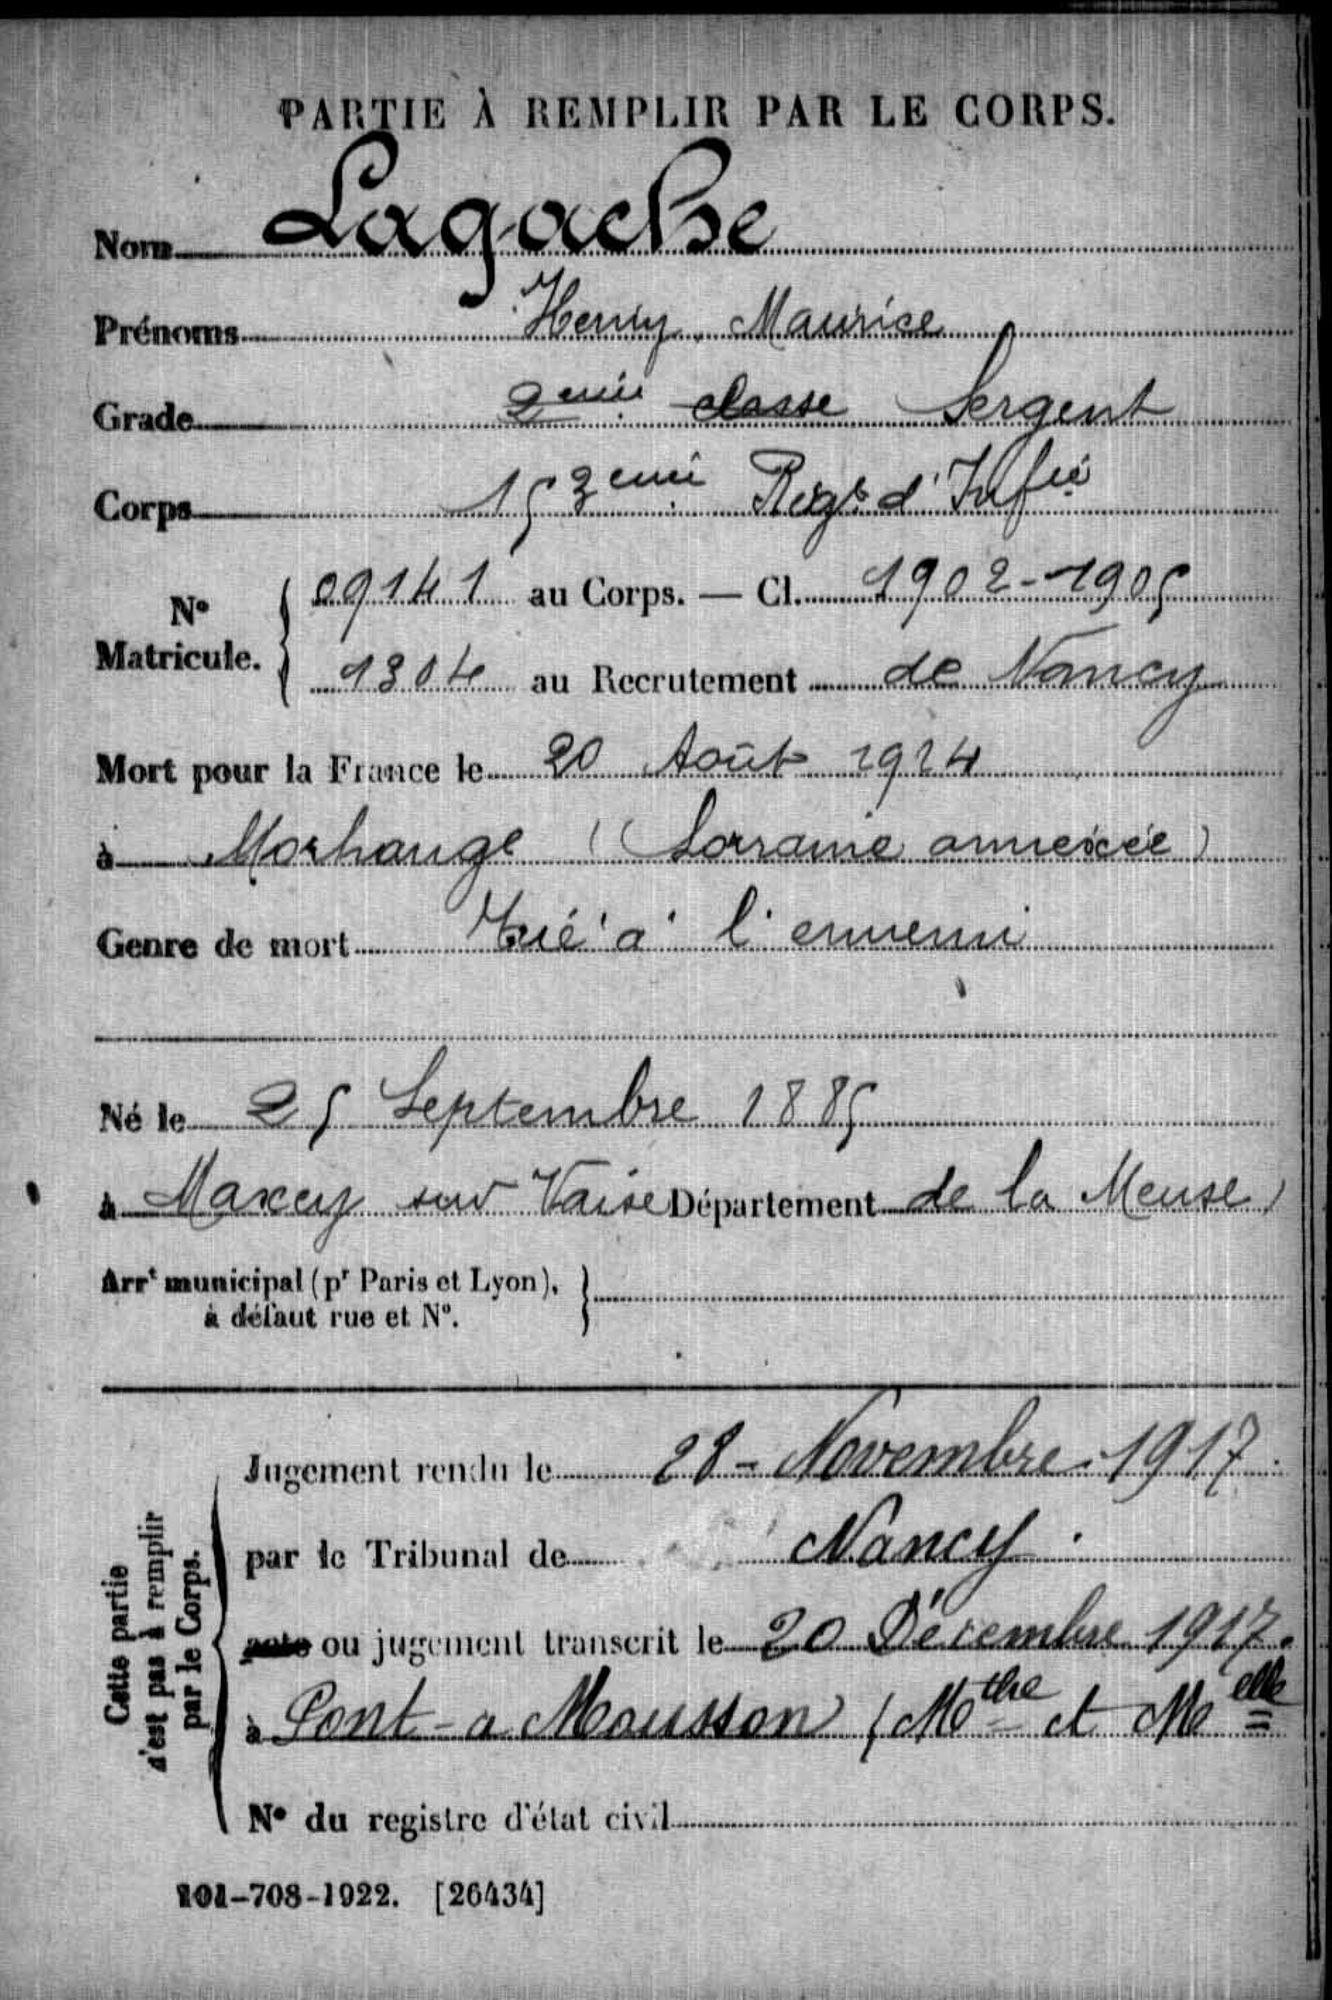 PARTIE À REMPLIR PAR LE CORPS.
Nom Lagache
Prénoms Henry Maurice
Grade 2eme classe Sergent
Corps 153eme Regt d'Infie
N° Matricule. { 09141 au Corps. — Cl. 1902-1905
1304 au Recrutement de Nancy
Mort pour la France le 20 Août 1914
à Morhange (Lorraine annexée)
Genre de mort Tué à l'ennemi
Né le 25 Septembre 1885
à Maxey sur Vaise Département de la Meuse)
Arrt municipal (pr Paris et Lyon),
à défaut rue et N°. }
Cette partie
n'est pas à remplir
par le Corps.
Jugement rendu le 28 - Novembre 1917.
par le Tribunal de Nancy.
acte ou jugement transcrit le 20 Décembre 1917.
à Pont-a-Mousson (Mthe et Melle
N° du registre d'état civil
101-708-1922. [26434]